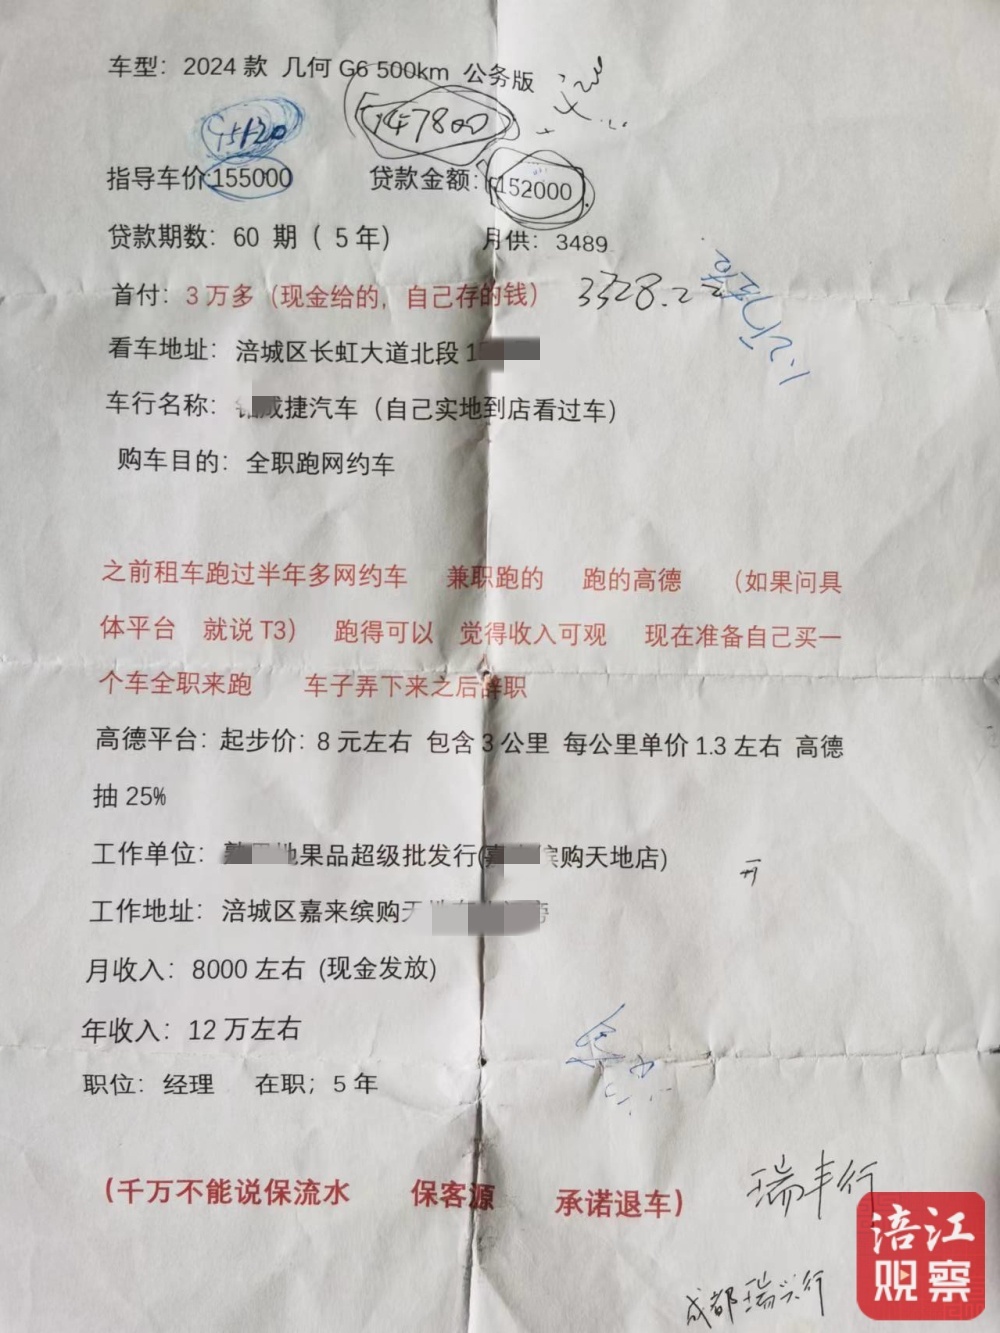 车型：2024 款 几何 G6 500km 公务版
147800
指导车价:155000 贷款金额：152000
贷款期数：60 期（ 5 年） 月供：3489
首付：3 万多（现金给的，自己存的钱） 3328.2
看车地址：涪城区长虹大道北段 1
车行名称： 捷汽车（自己实地到店看过车）
购车目的：全职跑网约车
之前租车跑过半年多网约车 兼职跑的 跑的高德 （如果问具
体平台 就说 T3） 跑得可以 觉得收入可观 现在准备自己买一
个车全职来跑 车子弄下来之后辞职
高德平台：起步价：8 元左右 包含 3 公里 每公里单价 1.3 左右 高德
抽 25%
工作单位： 果品超级批发行( 缤购天地店)
工作地址：涪城区嘉来缤购
月收入：8000 左右 (现金发放)
年收入：12 万左右
职位：经理 在职；5 年
（千万不能说保流水 保客源 承诺退车）
瑞丰行
成都瑞兴行
涪江
观察